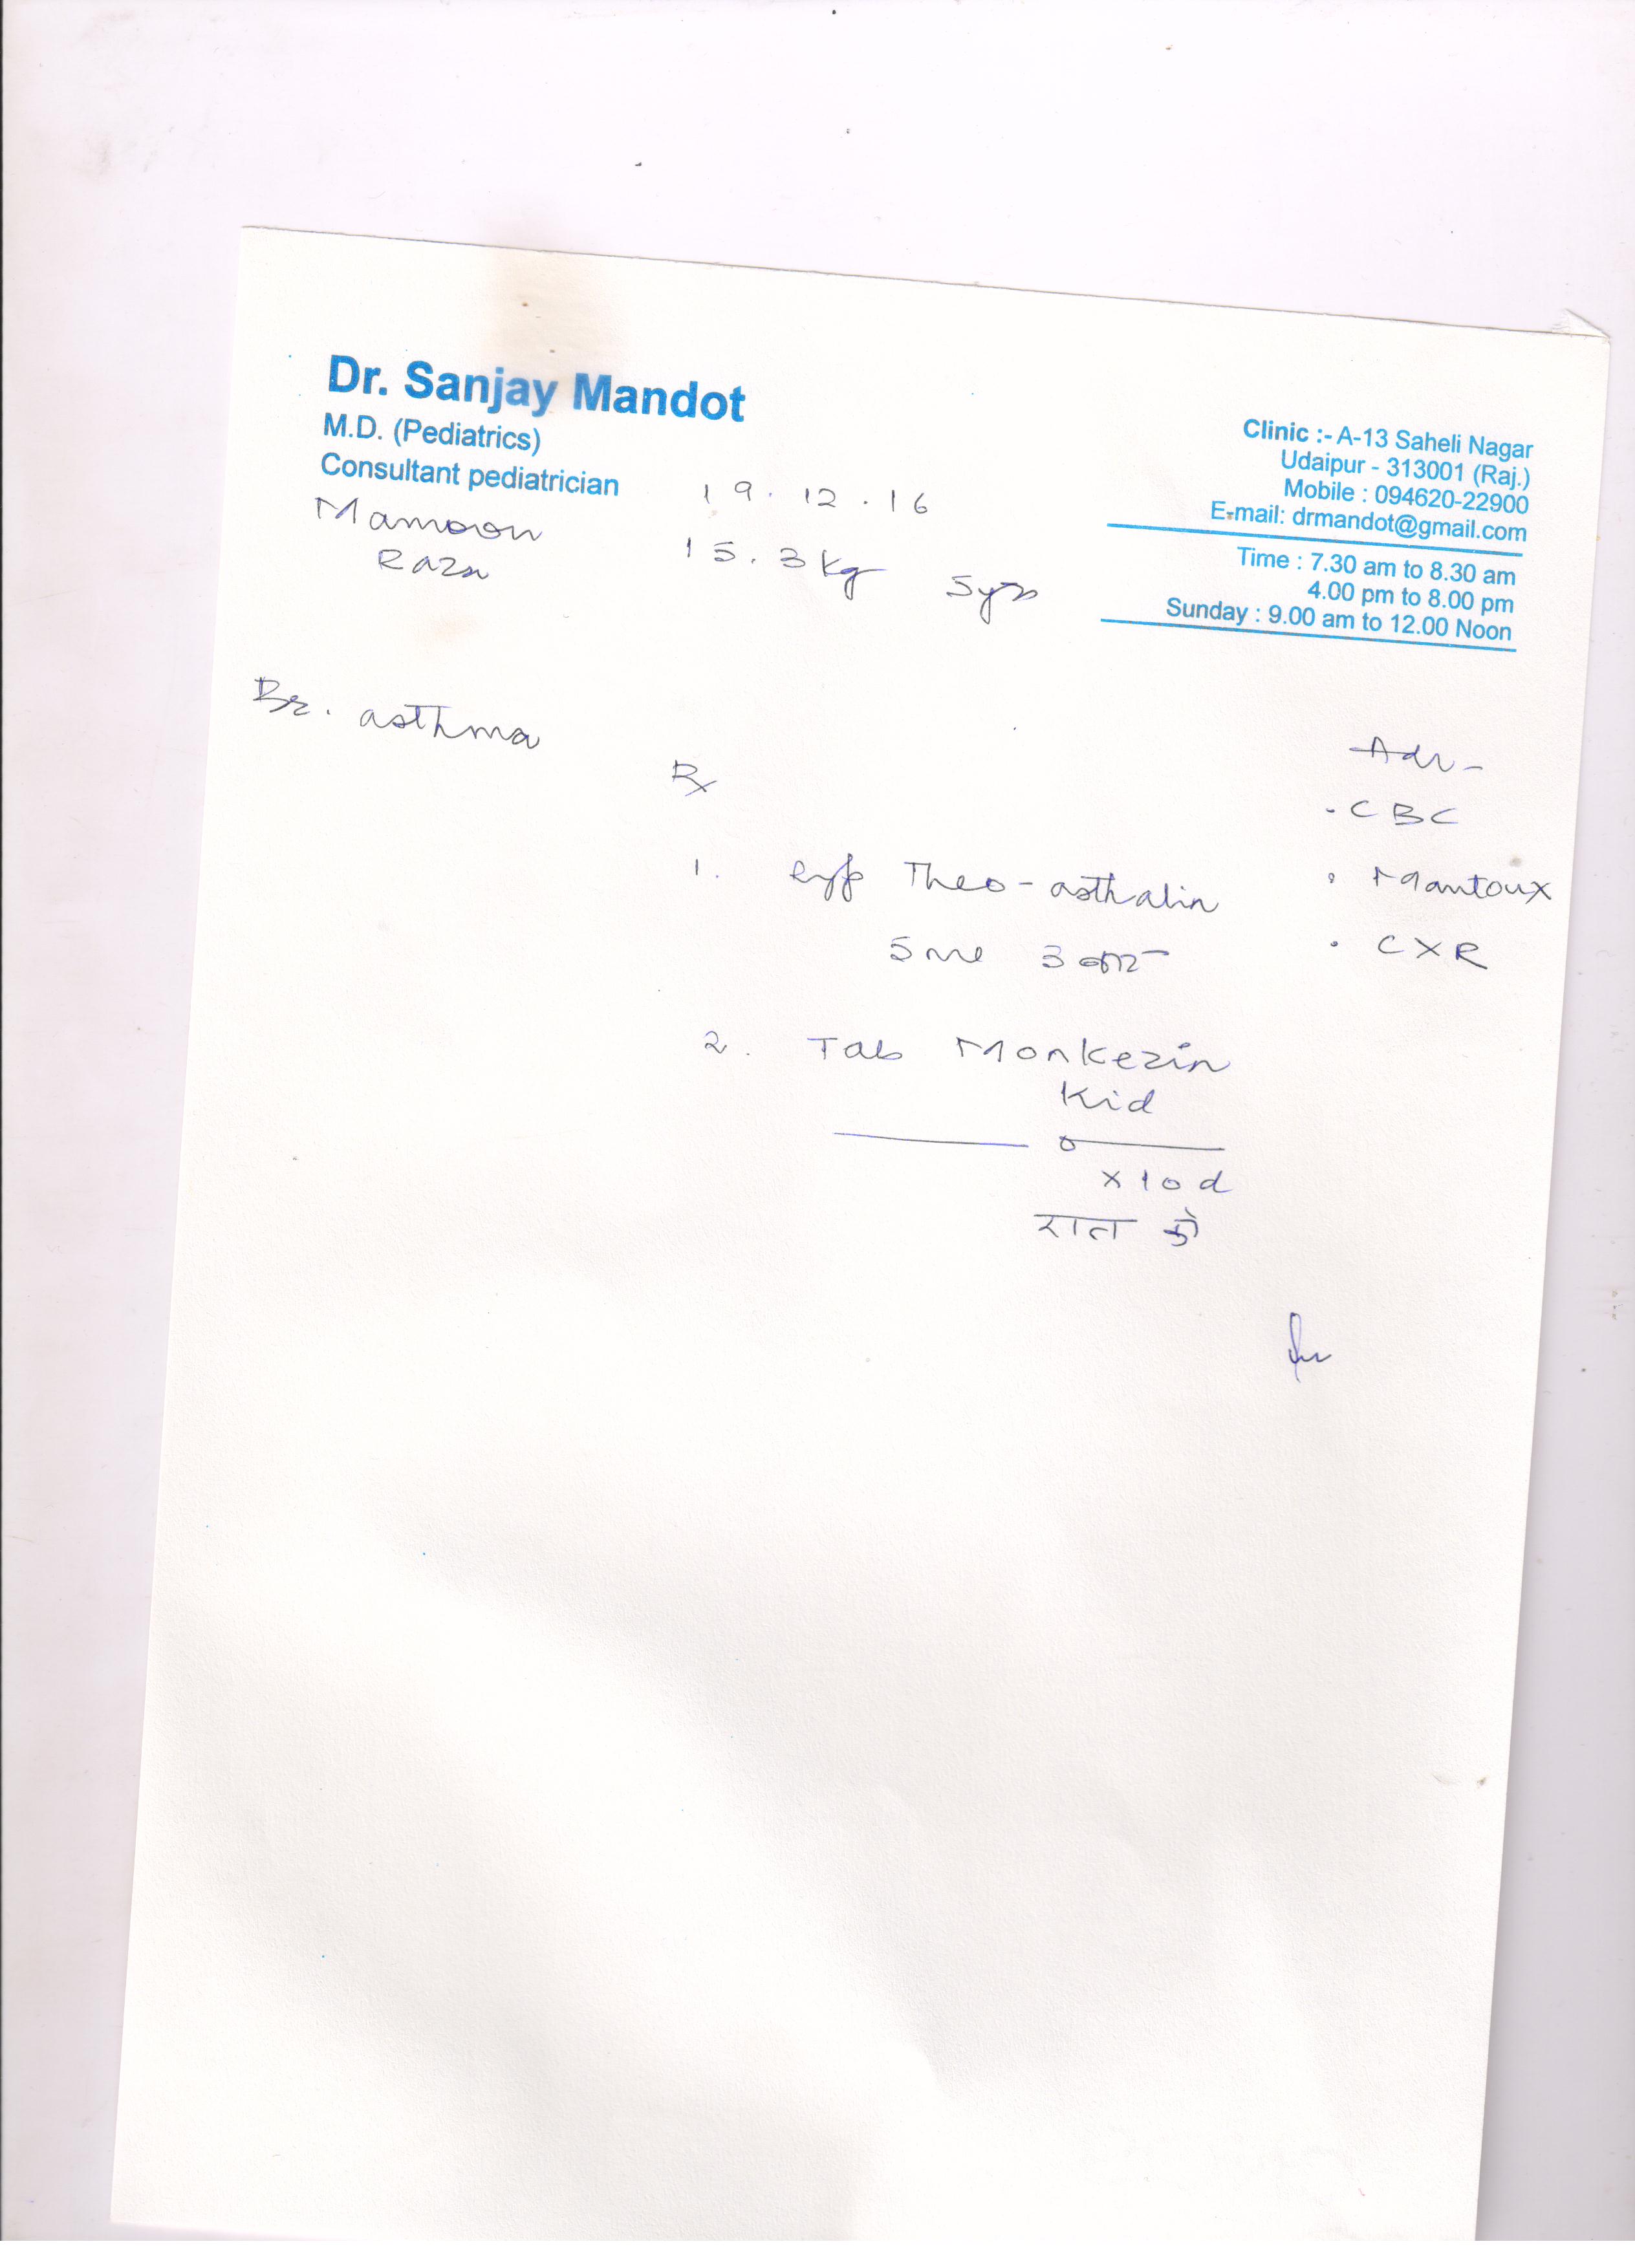 Dr. Sanjay Mandot
M.D. (Pediatrics)
Consultant pediatrician
Clinic :- A-13 Saheli Nagar
Udaipur - 313001 (Raj.)
Mobile : 094620-22900
E-mail: drmandot@gmail.com
Time : 7.30 am to 8.30 am
4.00 pm to 8.00 pm
Sunday : 9.00 am to 12.00 Noon
19.12.16
Mamoon
Raza
15.3 kg 5yrs
Br. asthma
Rx
Adv-
. CBC
. Mantoux
. CXR
1. Syp Theo-asthalin
5ml 3 बार
2. Tab Monkezin
Kid
x 10 d
रात को